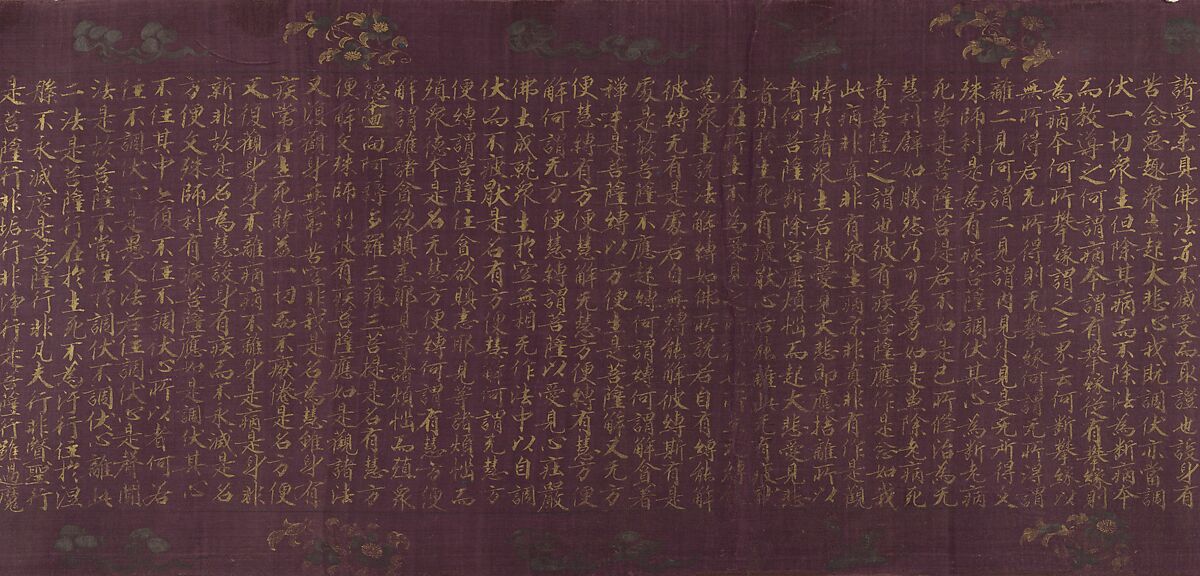 諸受未具佛法亦不滅受而取證也設身有
苦念惡趣衆生起大悲心我既調伏亦當調
伏一切衆生但除其病而不除法為斷病本
而教導之何謂病本謂有攀緣從有攀緣則
為病本何所攀緣謂之三界云何斷攀緣以
無所得若无所得則无攀緣何謂无所得謂
離二見何謂二見謂内見外見是无所得文
殊師利是為有疾菩薩調伏其心為斷老病
死苦是菩薩菩提若不如是己所修治為无
慧利譬如勝怨乃可為勇如是兼除老病死
者菩薩之謂也彼有疾菩薩應作是念如我
此病非真非有衆生病亦非真非有作是觀
時於諸衆生若起愛見大悲即應捨離所以
者何菩薩斷除客塵煩惱而起大悲愛見悲
者則於生死有疲猒心若能離此无有疲猒
在在所生不為愛見之
為衆生説法解縛如佛所説若自有縛能解
彼縛无有是處若自無縛能解彼縛斯有是
處是故菩薩不應起縛何謂縛何謂解貪著
禪味是菩薩縛以方便生是菩薩解又无方
便慧縛有方便慧解无慧方便縛有慧方便
解何謂无方便慧縛謂菩薩以愛見心莊嚴
佛土成就衆生於空無相无作法中以自調
伏而不疲猒是名有方便慧解何謂无慧方
便縛謂菩薩住貪欲瞋恚邪見等諸煩惱而
殖衆德本是名无慧方便縛何謂有慧方便
解謂離諸貪欲瞋恚邪見等諸煩惱而殖衆
德本迴向阿耨多羅三藐三菩提是名有慧方
便解文殊師利彼有疾菩薩應如是觀諸法
又復觀身無常苦空非我是名為慧雖身有
疾常在生死饒益一切而不疲惓是名方便
又復觀身身不離病病不離身是病是身非
新非故是名為慧設身有疾而不永滅是名
方便文殊師利有疾菩薩應如是調伏其心
不住其中亦復不住不調伏心所以者何若
住不調伏心是愚人法若住調伏心是聲聞
法是故菩薩不當住於調伏不調伏心離此
二法是菩薩行在於生死不為汙行住於涅
槃不永滅度是菩薩行非凡夫行非賢聖行
是菩薩行非垢行非淨行是菩薩行雖過魔